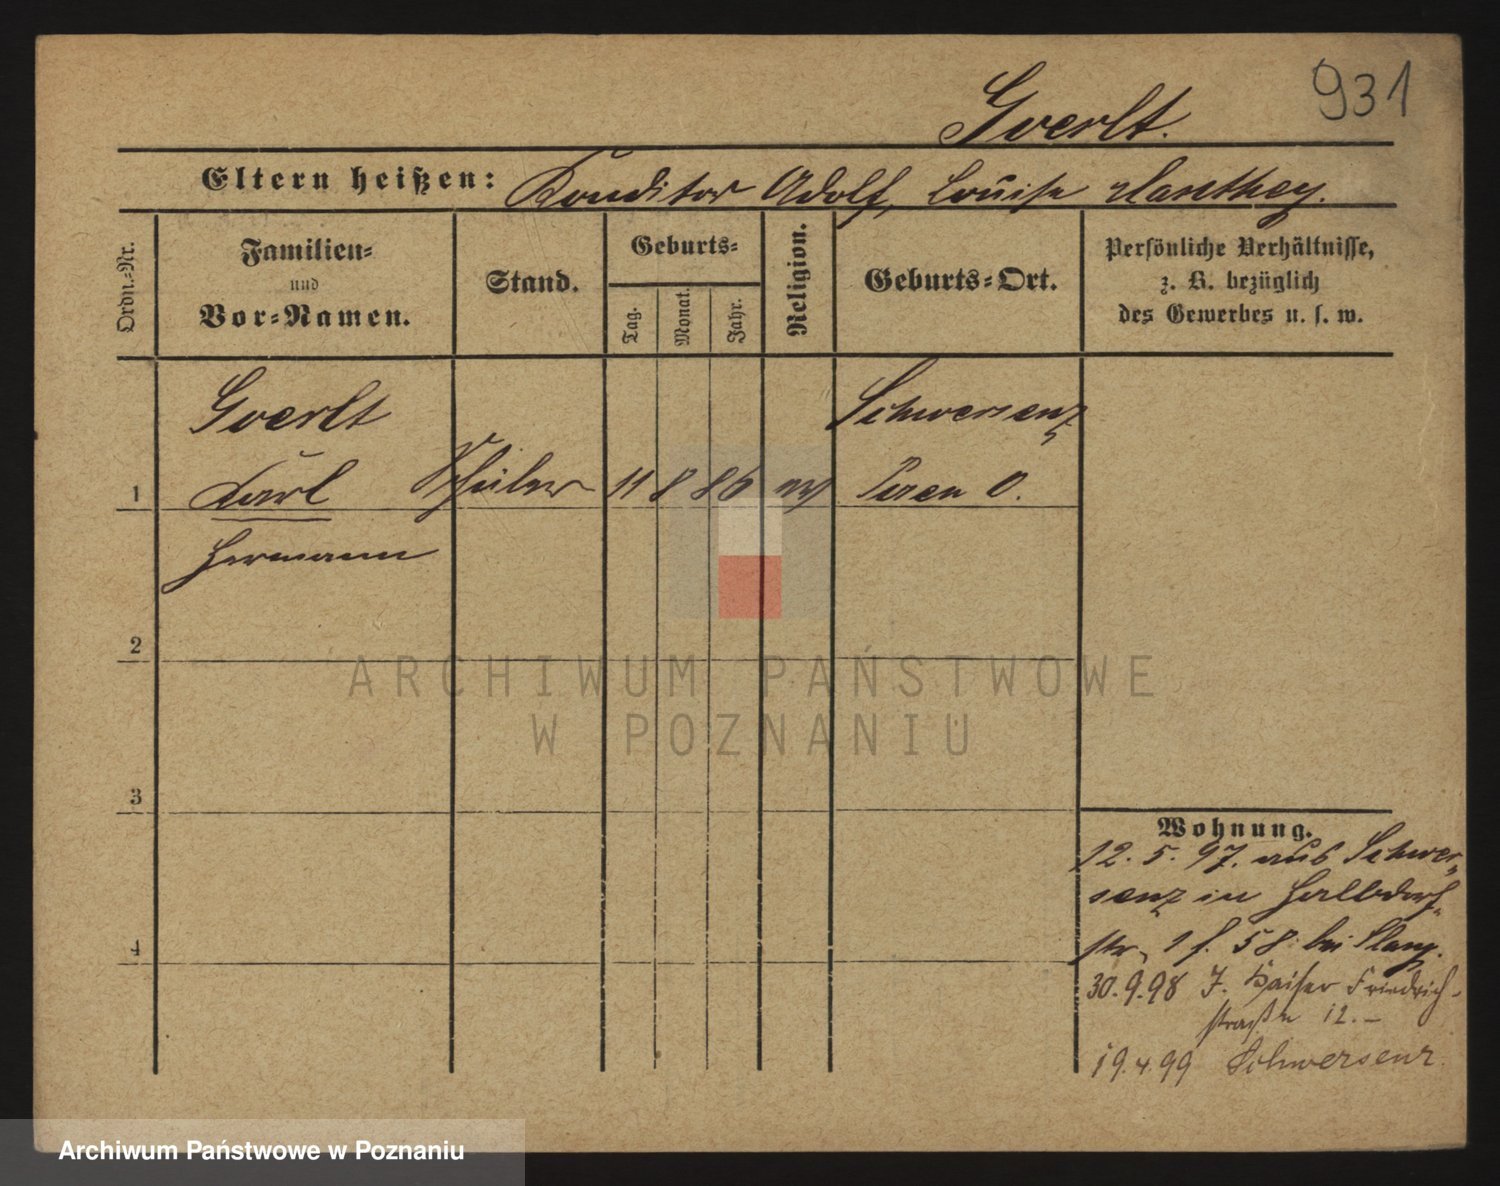 931
Goerlt.
Eltern heißen: Konditor Adolf, Louise Manthey.
Ordn.-Nr.
Familien-
und
Vor-Namen.
Stand.
Geburts-
Tag.
Monat.
Jahr.
Religion.
Geburts-Ort.
Persönliche Verhältnisse,
z. B. bezüglich
des Gewerbes u. s. w.
Goerlt
Schwersenz
1 Karl Schüler 11 8 86 ev Posen O.
Hermann
2
3
4
Wohnung.
12. 5. 97. aus Schwer-
senz in Halbdorf-
str. 58 bei
30. 9. 98 Kaiser Friedrich-
straße 12.-
19. 4. 99 Schwersenz.
ARCHIWUM PAŃSTWOWE
W POZNANIU
Archiwum Państwowe w Poznaniu